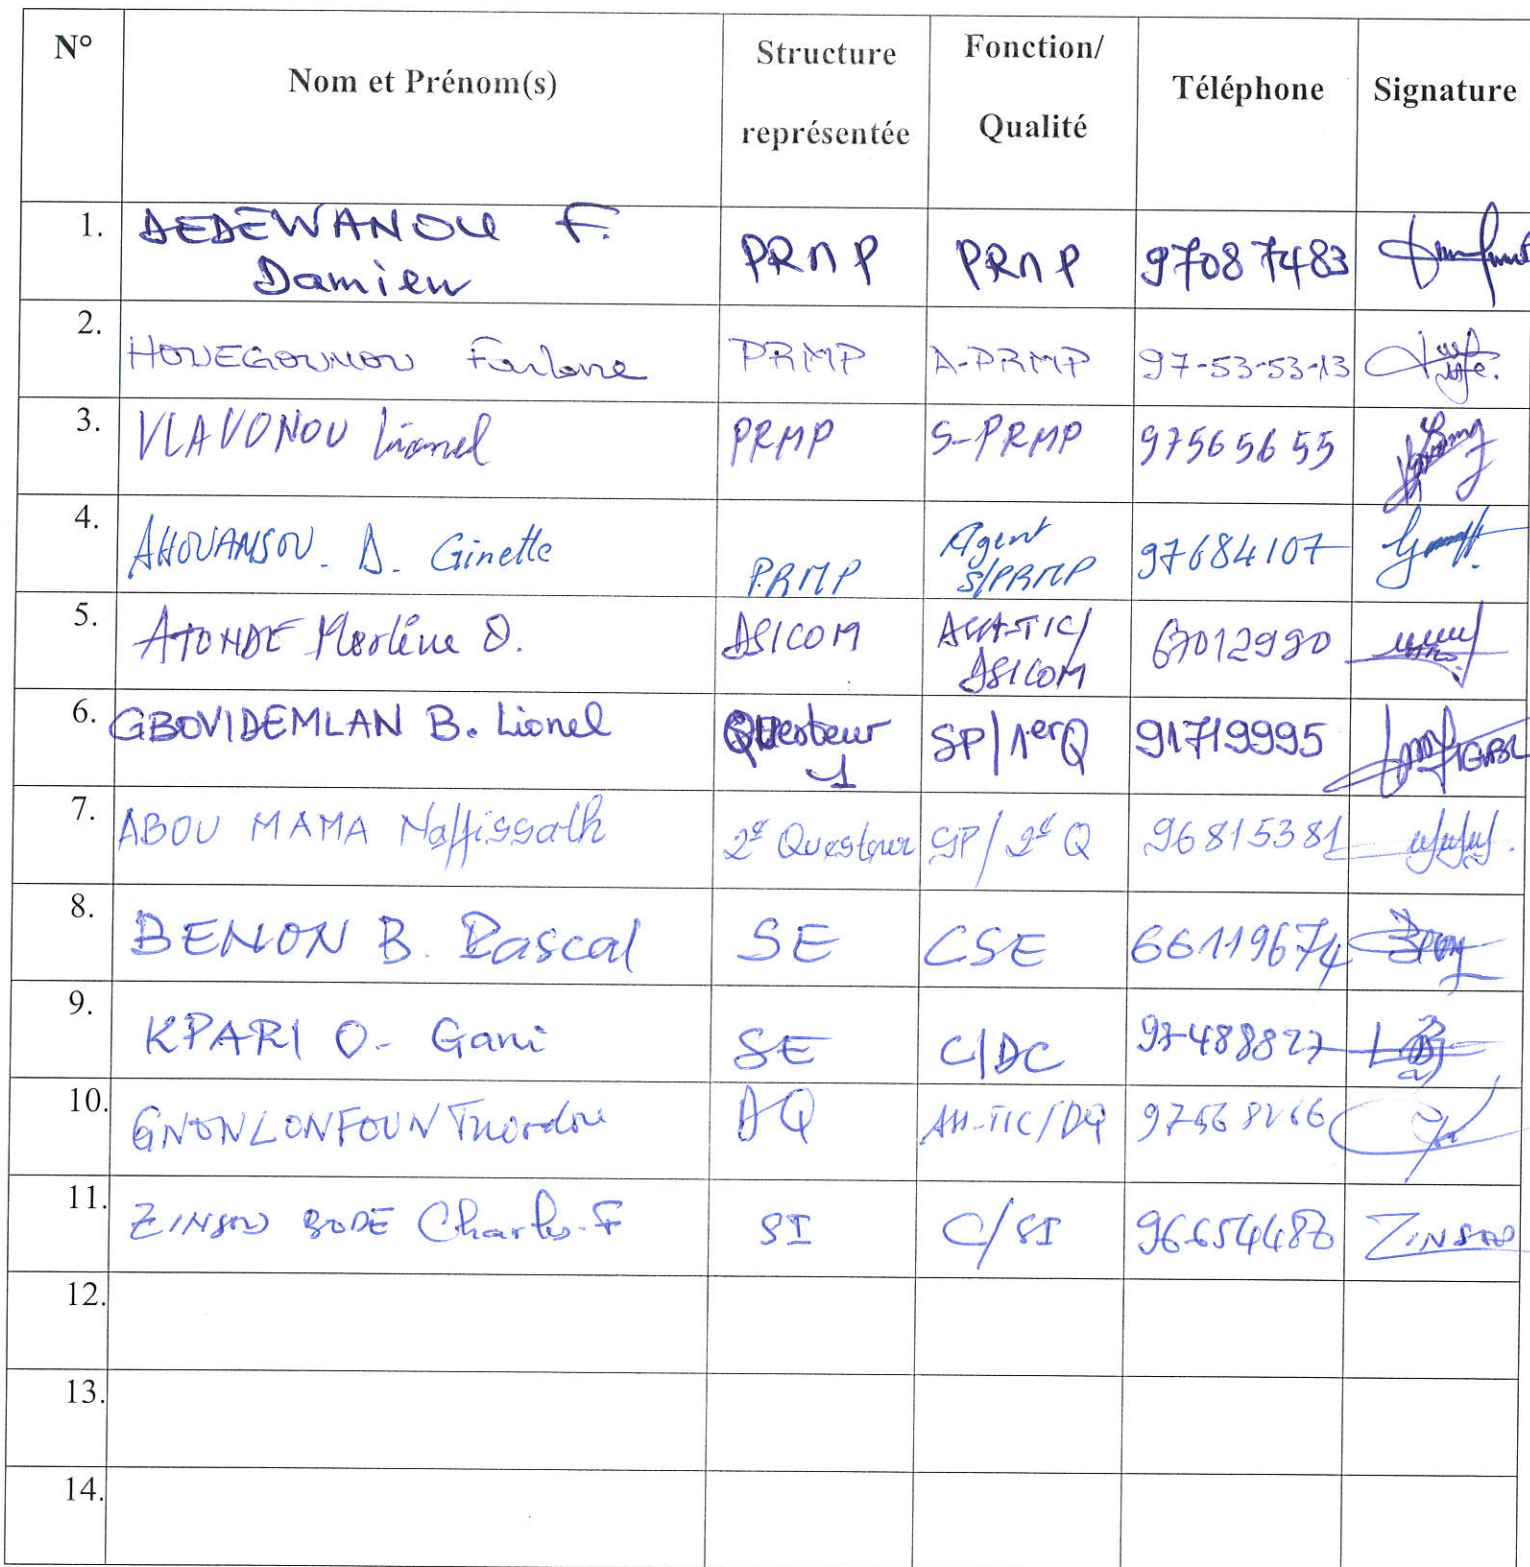 N° Nom et Prénom(s) Structure représentée Fonction/ Qualité Téléphone Signature
1. DEDEWANOU F. Damien PRMP PRMP 97087483
2. HOUEGOUNOU Farlane PRMP A-PRMP 97-53-53-13
3. VLAVONOU Lionel PRMP S-PRMP 97565655
4. AHOUANSOU. D. Ginette PRMP Agent S/PRMP 97684107
5. ATONDE Merlène O. DSICOM DSICOM 67012990
6. GBOVIDEMLAN B. Lionel Questeur 1 SP/1er Q 91719995
7. ABOU MAMA Naffissath 2e Questeur SP/2e Q 96815381
8. BENON B. Pascal SE CSE 66119674
9. KPARI O. Gani SE C/DC 97488827
10. GNONLONFOUN DQ AH-TIC/DQ
11. ZINSOU BODE Charles F SI C/SI ZINSOU
12.
13.
14.